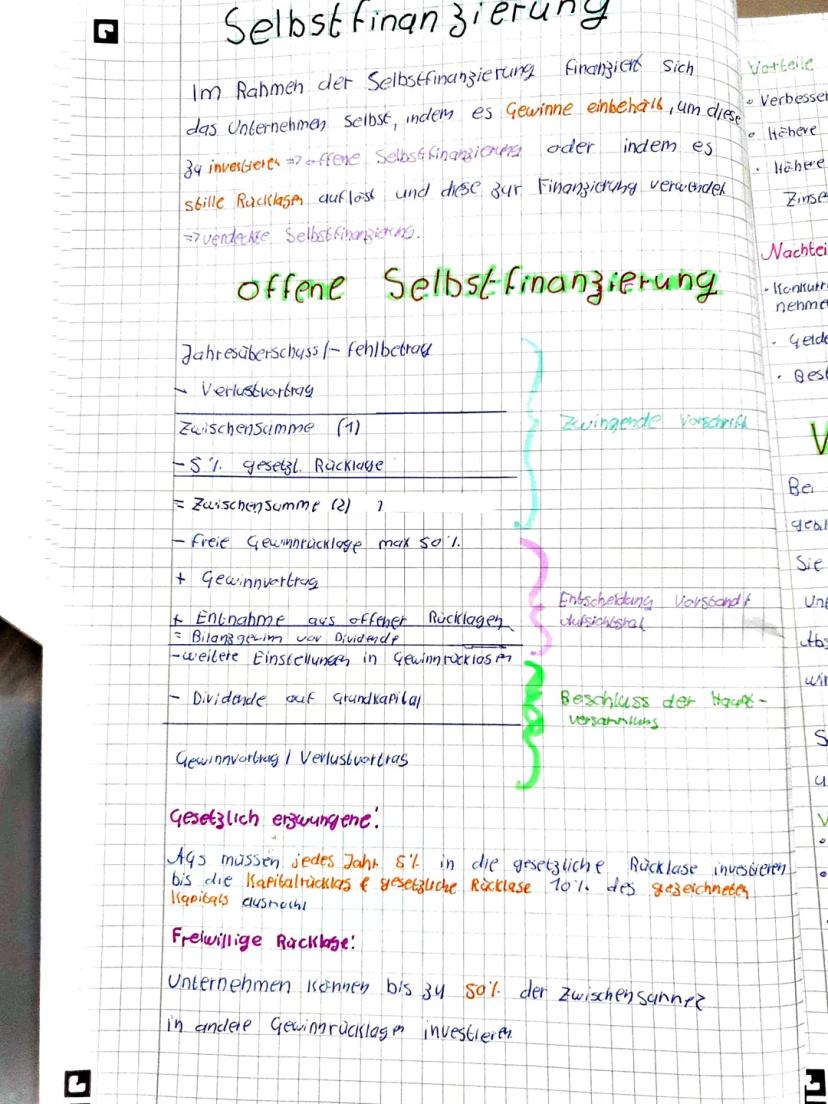 Selbstfinanzierung
Im Rahmen der Selbstfinanzierung finanziert sich
das Unternehmen selbst, indem es Gewinne einbehält, um diese
zu investieren => offene Selbstfinanzierung oder indem es
stille Rücklagen auflöst und diese zur Finanzierung verwendet
=> verdeckte Selbstfinanzierung.
offene Selbstfinanzierung
Jahresüberschuss/-fehlbetrag
- Verlustvortrag
Zwischensumme (1)
- 5% gesetzl. Rücklage
= Zwischensumme (2)
Zwingende Vorschrift
- Freie Gewinnrücklage max 50%
+ Gewinnvortrag
+ Entnahme aus offener Rücklagen
= Bilanzgewinn vor Dividende
Entscheidung Vorstand/
Aufsichtsrat
- weitere Einstellungen in Gewinnrücklagen
- Dividende auf Grundkapital
Beschluss der Haupt-
versammlung
Gewinnvortrag / Verlustvortrag
Gesetzlich erzwungene:
AGs müssen jedes Jahr 5% in die gesetzliche Rücklage investieren
bis die Kapitalrücklag & gesetzliche Rücklage 10% des gezeichneten
Kapitals ausmacht
Freiwillige Rücklage:
Unternehmen können bis zu 50% der Zwischensumme 2
in andere Gewinnrücklagen investieren
Vorteile
• Verbesser
• Höhere
• Höhere
Zinse
Nachtei
• Konkurr
nehme
• Gelde
• Best
V
Bei
gebil
Sie
Unt
Abs
wir
S
u
V